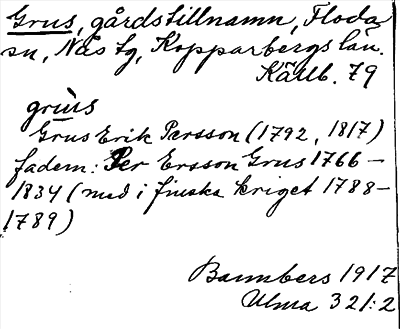 Grus, gårdstillnamn, Floda
sn, Nås tg, Kopparbergs län.
Källb. 79
grùs
Grus Erik Persson (1792, 1817)
fadern: Per Ersson Grus 1766–
1834 (med i finska kriget 1788–
1789)
Bannbers 1917
Ulma 321:2